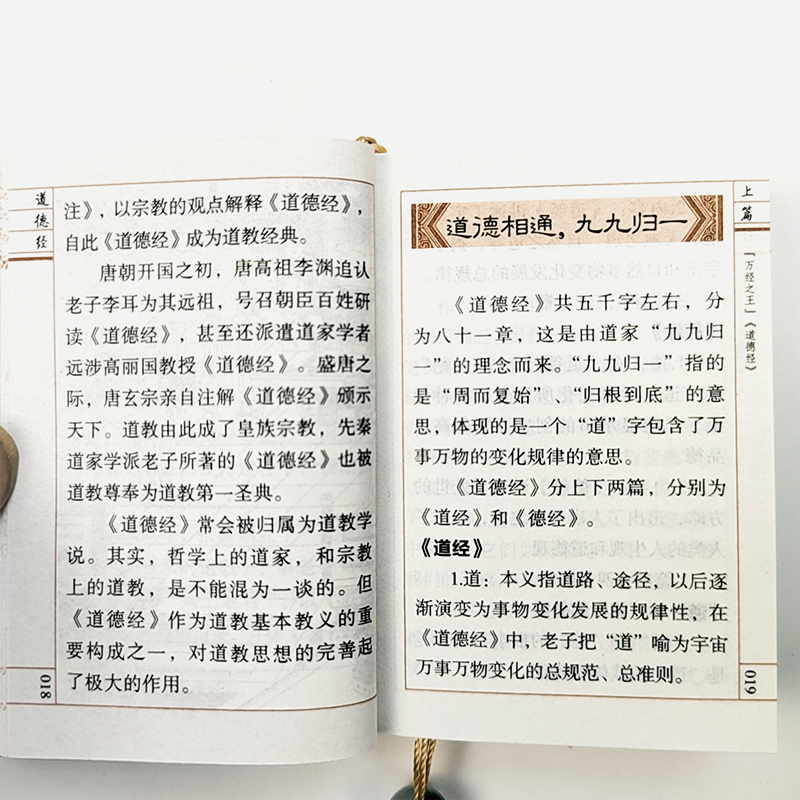 道德经
注》，以宗教的观点解释《道德经》，
自此《道德经》成为道教经典。
唐朝开国之初，唐高祖李渊追认
老子李耳为其远祖，号召朝臣百姓研
读《道德经》，甚至还派遣道家学者
远涉高丽国教授《道德经》。盛唐之
际，唐玄宗亲自注解《道德经》颁示
天下。道教由此成了皇族宗教，先秦
道家学派老子所著的《道德经》也被
道教尊奉为道教第一圣典。
《道德经》常会被归属为道教学
说。其实，哲学上的道家，和宗教
上的道教，是不能混为一谈的。但
《道德经》作为道教基本教义的重
要构成之一，对道教思想的完善起
了极大的作用。
018
上篇
「万经之王」《道德经》
道德相通，九九归一
《道德经》共五千字左右，分
为八十一章，这是由道家“九九归
一”的理念而来。“九九归一”指的
是“周而复始”、“归根到底”的意
思，体现的是一个“道”字包含了万
事万物的变化规律的意思。
《道德经》分上下两篇，分别为
《道经》和《德经》。
《道经》
1.道：本义指道路、途径，以后逐
渐演变为事物变化发展的规律性，在
《道德经》中，老子把“道”喻为宇宙
万事万物变化的总规范、总准则。
019